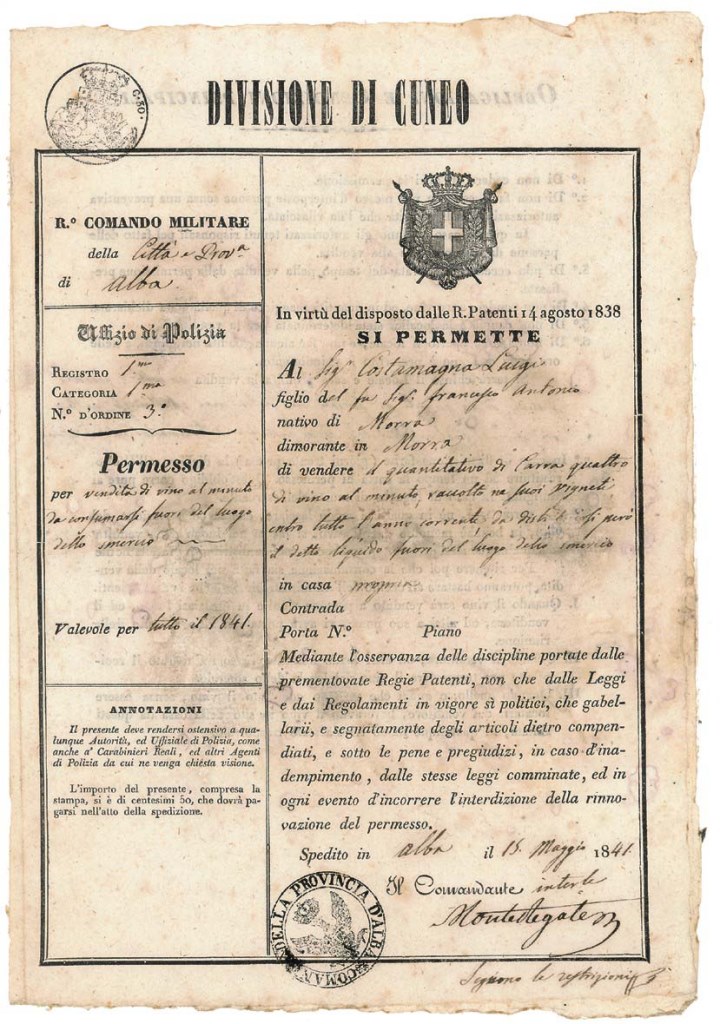 C. 50.
DIVISIONE DI CUNEO
R.º COMANDO MILITARE
della Città e Prov.a
di Alba
Uffizio di Polizia
REGISTRO 1.mo
CATEGORIA 1.ma
N.º D'ORDINE 3.º
Permesso
per vendita di vino al minuto
da consumarsi fuori del luogo
dello smercio
Valevole per tutto il 1841.
ANNOTAZIONI
Il presente deve rendersi ostensivo a qua-
lunque Autorità, ed Uffiziale di Polizia, come
anche a' Carabinieri Reali, ed altri Agenti
di Polizia da cui ne venga chiesta visione.
L'importo del presente, compresa la
stampa, si è di centesimi 50, che dovrà pa-
garsi nell'atto della spedizione.
In virtù del disposto dalle R. Patenti 14 agosto 1838
SI PERMETTE
Al Sig.r Costamagna Luigi
figlio del fu Sig.r Francesco Antonio
nativo di Morra
dimorante in Morra
di vendere il quantitativo di Carra quattro
di vino al minuto, raccolto ne suoi vigneti
entro tutto l'anno corrente da si però
il detto liquido fuori del luogo dello smercio
in casa propria
Contrada
Porta N.º Piano
Mediante l'osservanza delle discipline portate dalle
prementovate Regie Patenti, non che dalle Leggi
e dai Regolamenti in vigore sì politici, che gabel-
larii, e segnatamente degli articoli dietro compen-
diati, e sotto le pene e pregiudizi, in caso d'ina-
dempimento, dalle stesse leggi comminate, ed in
ogni evento d'incorrere l'interdizione della rinno-
vazione del permesso.
Spedito in Alba il 15. Maggio 1841.
Il Comandante
COMAN DELLA PROVINCIA D'ALBA
Seguono le restrizioni